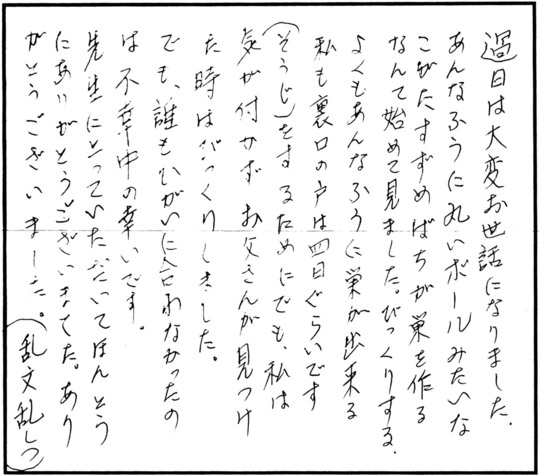 過日は大変お世話になりました。
あんなふうに丸いボールみたいな
こがたすずめばちが巣を作る
なんて始めて見ました。びっくりする。
よくもあんなふうに巣が出来る
私も裏口の戸は四日ぐらいです
(そうじ)をするためにでも、私は
気が付かず お父さんが見つけ
た時はびっくりしました。
でも、誰もひがいに合わなかったの
は不幸中の幸いです。
先生にとっていただいてほんとう
にありがとうございました。あり
がとうございました。(乱文乱しつ)